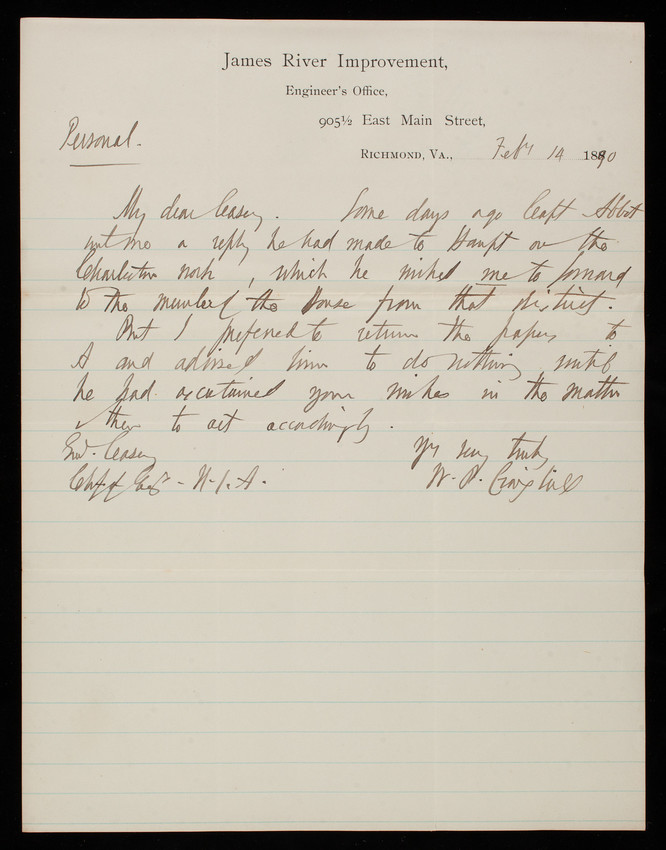 James River Improvement,
Engineer's Office,
905½ East Main Street,
Personal.
Richmond, Va., Feby 14 1890
My dear Casey. Some days ago Capt Abbot
sent me a reply he had made to Haupt on the
Charleston work, which he wished me to forward
to the member of the House from that district.
But I preferred to return the papers to
A and advised him to do nothing until
he had ascertained your wishes in the matter
& then to act accordingly.
Genl. Casey
Yrs very truly
Chf of Engrs - U.S.A.
W. P. Craighill